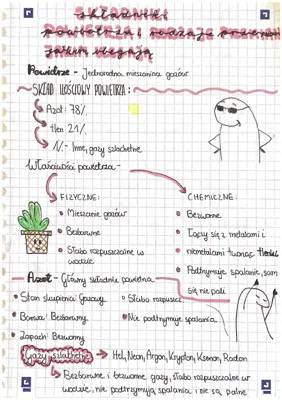 Składniki
powietrza i rodzaje przemian
jakim ulegają
Powietrze - Jednorodna mieszanina gazów
SKŁAD ILOŚCIOWY POWIETRZA:
Azot: 78%
tlen 21%
N - Inne, gazy szlachetne
Właściwości powietrza -
FIZYCZNE:
• Mieszanie gazów
• Bezbarwne
• Słabo rozpuszczalne w
wodzie
CHEMICZNE:
• Bezwonne
• Łączy się z metalami i
niemetalami tworząc tlenki
• Podtrzymuje spalanie, sam
się nie pali
Azot - Główny składnik powietrza
• Stan skupienia: Gazowy
• Barwa: Bezbarwny
• Zapach: Bezwonny
• Słabo rozpuszcz.
• Nie podtrzymuje spalania
Gazy szlachetne → Hel, Neon, Argon, Krypton, Ksenon, Radon
Bezbarwne i bezwonne gazy, słabo rozpuszczalne w
wodzie, nie podtrzymują spalania i nie są palne